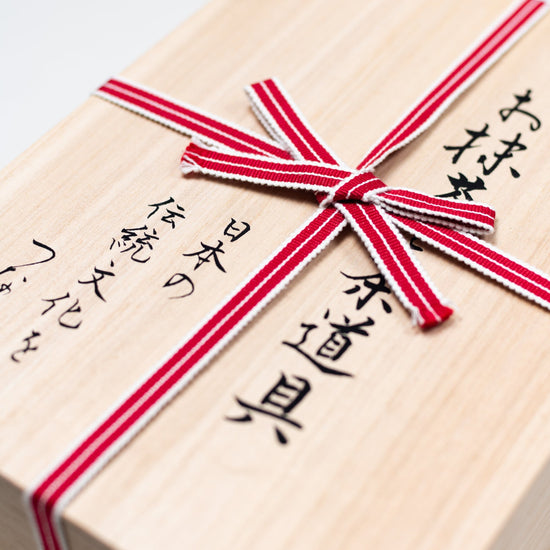 お抹茶 茶道具
日本の
伝統文化を
つな